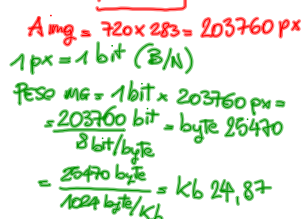 A img = 720 x 283 = 203760 px
1 px = 1 bit (B/N)
PESO MG = 1 bit x 203760 px =
= 203760 bit / 8 bit/byte = byte 25470
= 25470 byte / 1024 byte/Kb = Kb 24,87